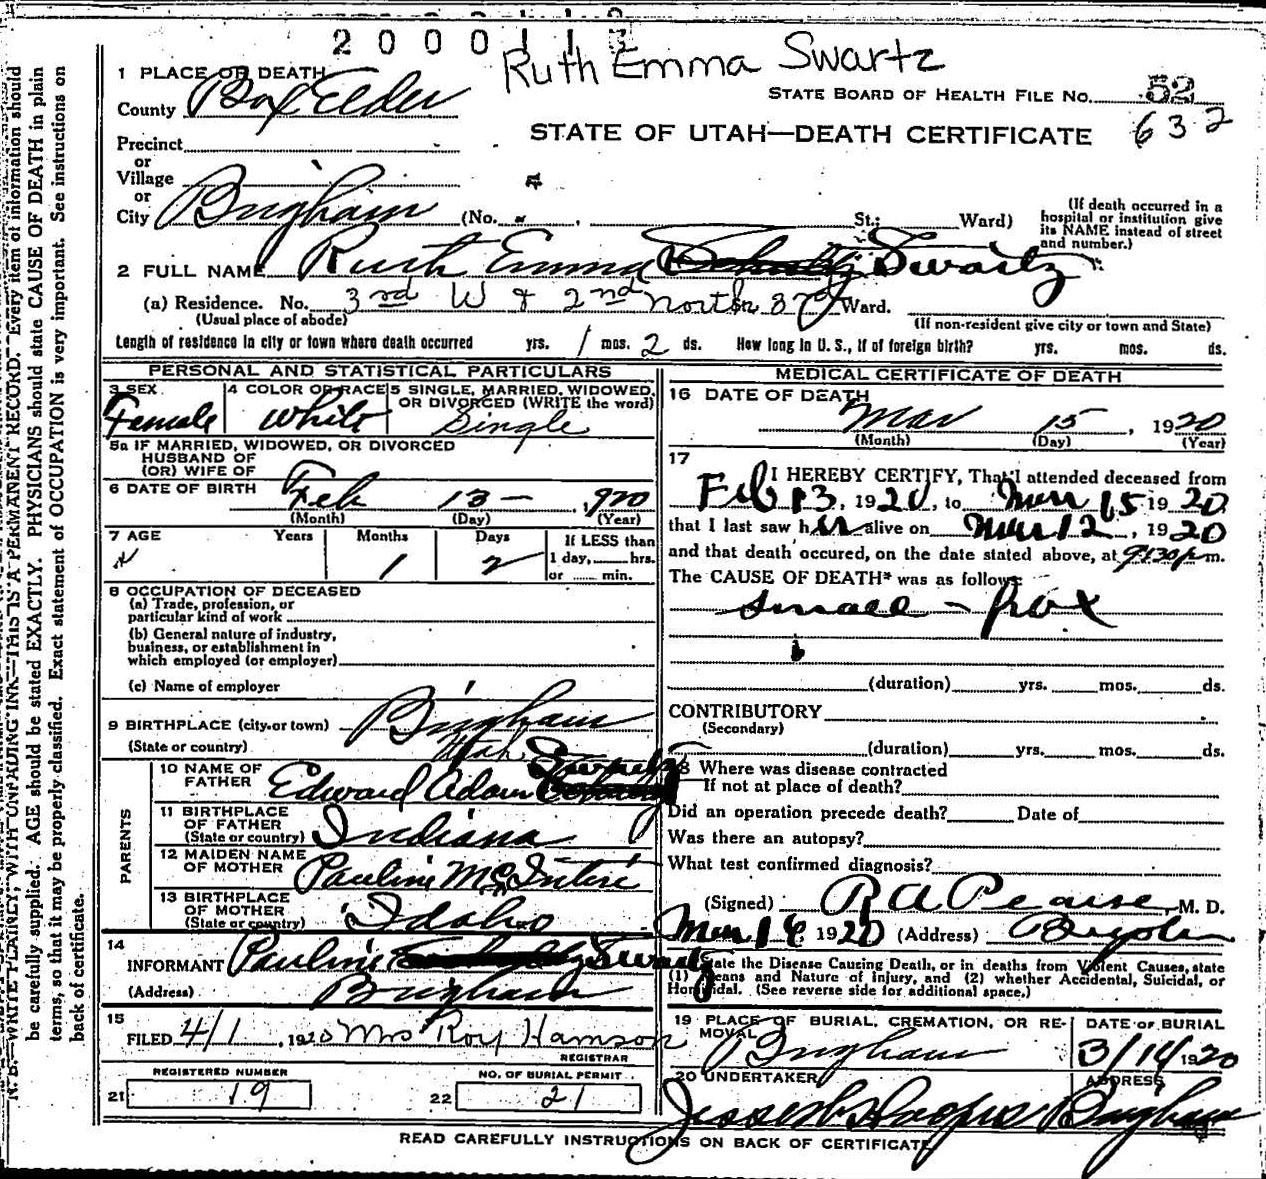 2000113
Ruth Emma Swartz
1 PLACE OF DEATH
County Box Elder
STATE BOARD OF HEALTH FILE NO. 52
632
STATE OF UTAH—DEATH CERTIFICATE
Precinct
or
Village
or
City Brigham (No. St.; Ward)
(If death occurred in a
hospital or institution give
its NAME instead of street
and number.)
2 FULL NAME Ruth Emma Swartz
(a) Residence. No. 3rd W & 2nd North 3rd Ward.
(Usual place of abode) (If non-resident give city or town and State)
Length of residence in city or town where death occurred yrs. 1 mos. 2 ds. How long in U. S., if of foreign birth? yrs. mos. ds.
PERSONAL AND STATISTICAL PARTICULARS
3 SEX
Female
4 COLOR OR RACE
White
5 SINGLE, MARRIED, WIDOWED,
OR DIVORCED (WRITE the word)
Single
5a IF MARRIED, WIDOWED, OR DIVORCED
HUSBAND OF
(OR) WIFE OF
6 DATE OF BIRTH Feb 13 – , 1920
(Month) (Day) (Year)
7 AGE Years Months Days If LESS than
1 2 1 day, hrs.
or min.
8 OCCUPATION OF DECEASED
(a) Trade, profession, or
particular kind of work
(b) General nature of industry,
business, or establishment in
which employed (or employer)
(c) Name of employer
9 BIRTHPLACE (city or town) Brigham
(State or country) Utah
PARENTS
10 NAME OF
FATHER Edward Adam Swartz
11 BIRTHPLACE
OF FATHER
(State or country) Indiana
12 MAIDEN NAME
OF MOTHER Pauline McIntire
13 BIRTHPLACE
OF MOTHER
(State or country) Idaho
14
INFORMANT Pauline Swartz
(Address) Brigham
15
FILED 4/1, 1920 Mrs Roy Hamson
REGISTRAR
REGISTERED NUMBER
21 19
NO. OF BURIAL PERMIT
22 21
MEDICAL CERTIFICATE OF DEATH
16 DATE OF DEATH
Mar 15, 1920
(Month) (Day) (Year)
17
I HEREBY CERTIFY, That I attended deceased from
Feb 13, 1920, to Mar 15 1920
that I last saw her alive on Mar 12, 1920
and that death occured, on the date stated above, at 9:30 p m.
The CAUSE OF DEATH* was as follows:
small-pox
(duration) yrs. mos. ds.
CONTRIBUTORY
(Secondary)
(duration) yrs. mos. ds.
18 Where was disease contracted
If not at place of death?
Did an operation precede death? Date of
Was there an autopsy?
What test confirmed diagnosis?
(Signed) R A Pearse, M. D.
Mar 16 1920 (Address) Brigham
State the Disease Causing Death, or in deaths from Violent Causes, state
(1) Means and Nature of Injury, and (2) whether Accidental, Suicidal, or
Homicidal. (See reverse side for additional space.)
19 PLACE OF BURIAL, CREMATION, OR RE-
MOVAL
Brigham
DATE OF BURIAL
3/14 1920
20 UNDERTAKER
ADDRESS
Brigham
READ CAREFULLY INSTRUCTIONS ON BACK OF CERTIFICATE
N. B.—WRITE PLAINLY, WITH UNFADING INK—THIS IS A PERMANENT RECORD. Every item of information should
be carefully supplied. AGE should be stated EXACTLY. PHYSICIANS should state CAUSE OF DEATH in plain
terms, so that it may be properly classified. Exact statement of OCCUPATION is very important. See instructions on
back of certificate.